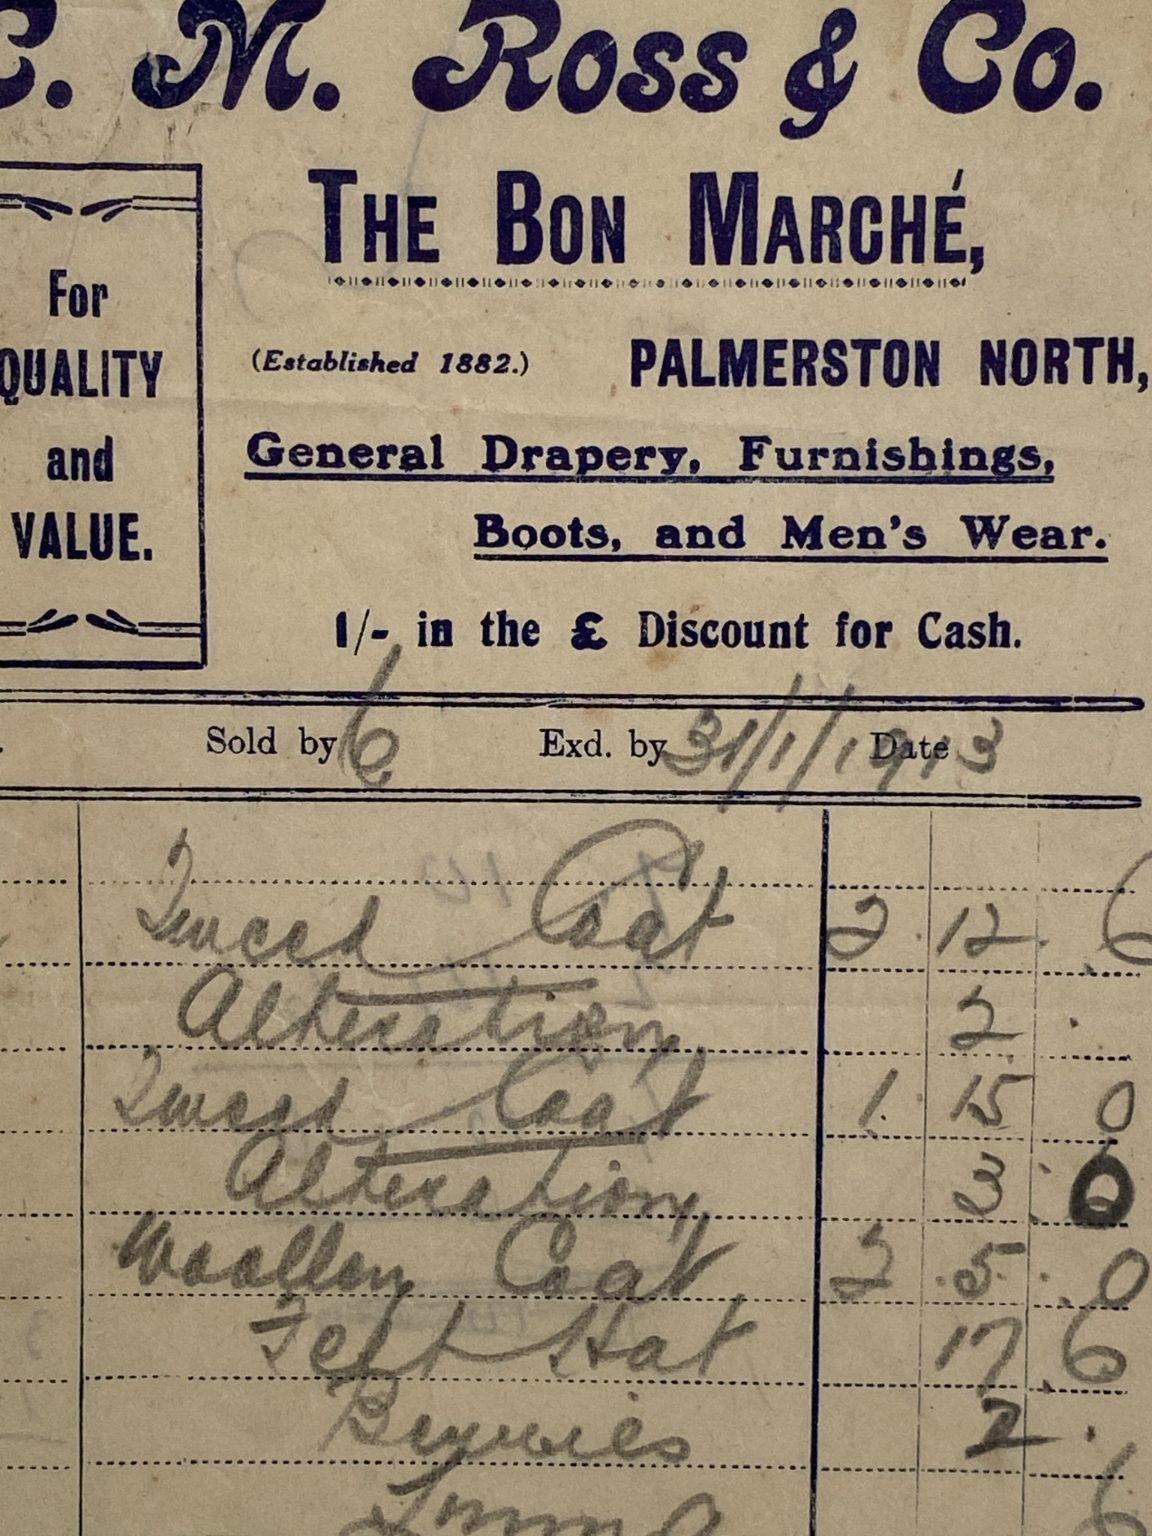 C. M. Ross & Co.
THE BON MARCHÉ,
For
QUALITY
and
VALUE.
(Established 1882.)
PALMERSTON NORTH,
General Drapery, Furnishings,
Boots, and Men's Wear.
1/- in the £ Discount for Cash.
Sold by 6 Exd. by Date 31/1/1913
Tweed Coat 2 . 12 . 6
Alteration 2 .
Tweed Coat 1 . 15 0
Alteration 3 : 0
Woollen Coat 2 . 5 . 0
Felt Hat 17 . 6
Berries 2 .
6